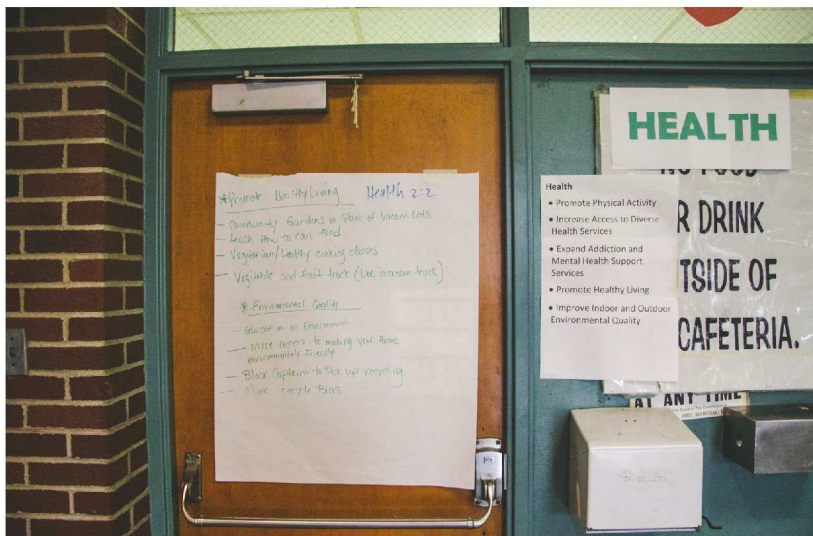 * Promote Healthy Living Health 2:2
- Community Gardens in Place of Vacant Lots
- teach How to can food
- Vegetarian/healthy cooking classes
- Vegitable and fruit truck (like icecream truck)
* Environmental Quality
- education on Enviroment
- more access to making your home
environmentely friendly
- Block Captains to Pick up recycling
- More recycle Bins
HEALTH
Health
• Promote Physical Activity
• Increase Access to Diverse
Health Services
• Expand Addiction and
Mental Health Support
Services
• Promote Healthy Living
• Improve Indoor and Outdoor
Environmental Quality
NO FOOD
R DRINK
TSIDE OF
CAFETERIA.
AT ANY TIME